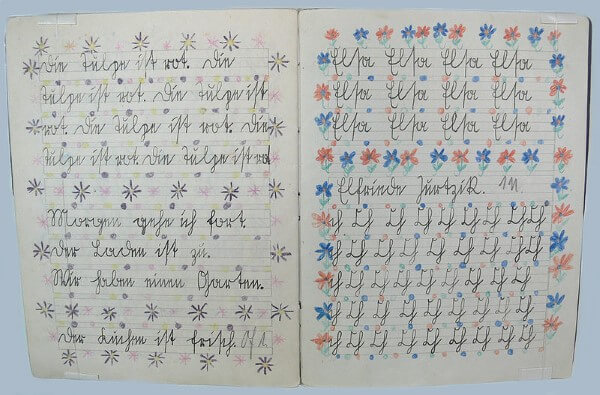 Die Tulpe ist rot. Die
Tulpe ist rot. Die Tulpe ist
rot. Die Tulpe ist rot. Die
Tulpe ist rot. Die Tulpe ist ro
Morgen gehe ich fort.
Der Laden ist zu.
Wir haben einen Garten.
Der Kuchen ist frisch.
Elsa Elsa Elsa Elsa
Elsa Elsa Elsa Elsa
Elsa Elsa Elsa Elsa
Elfriede Jurtzik.
ch Ch Ch Ch Ch Ch Ch Ch
ch Ch Ch Ch Ch Ch Ch Ch
ch Ch Ch Ch Ch Ch Ch
ch Ch Ch Ch Ch Ch Ch
ch Ch Ch Ch Ch Ch Ch